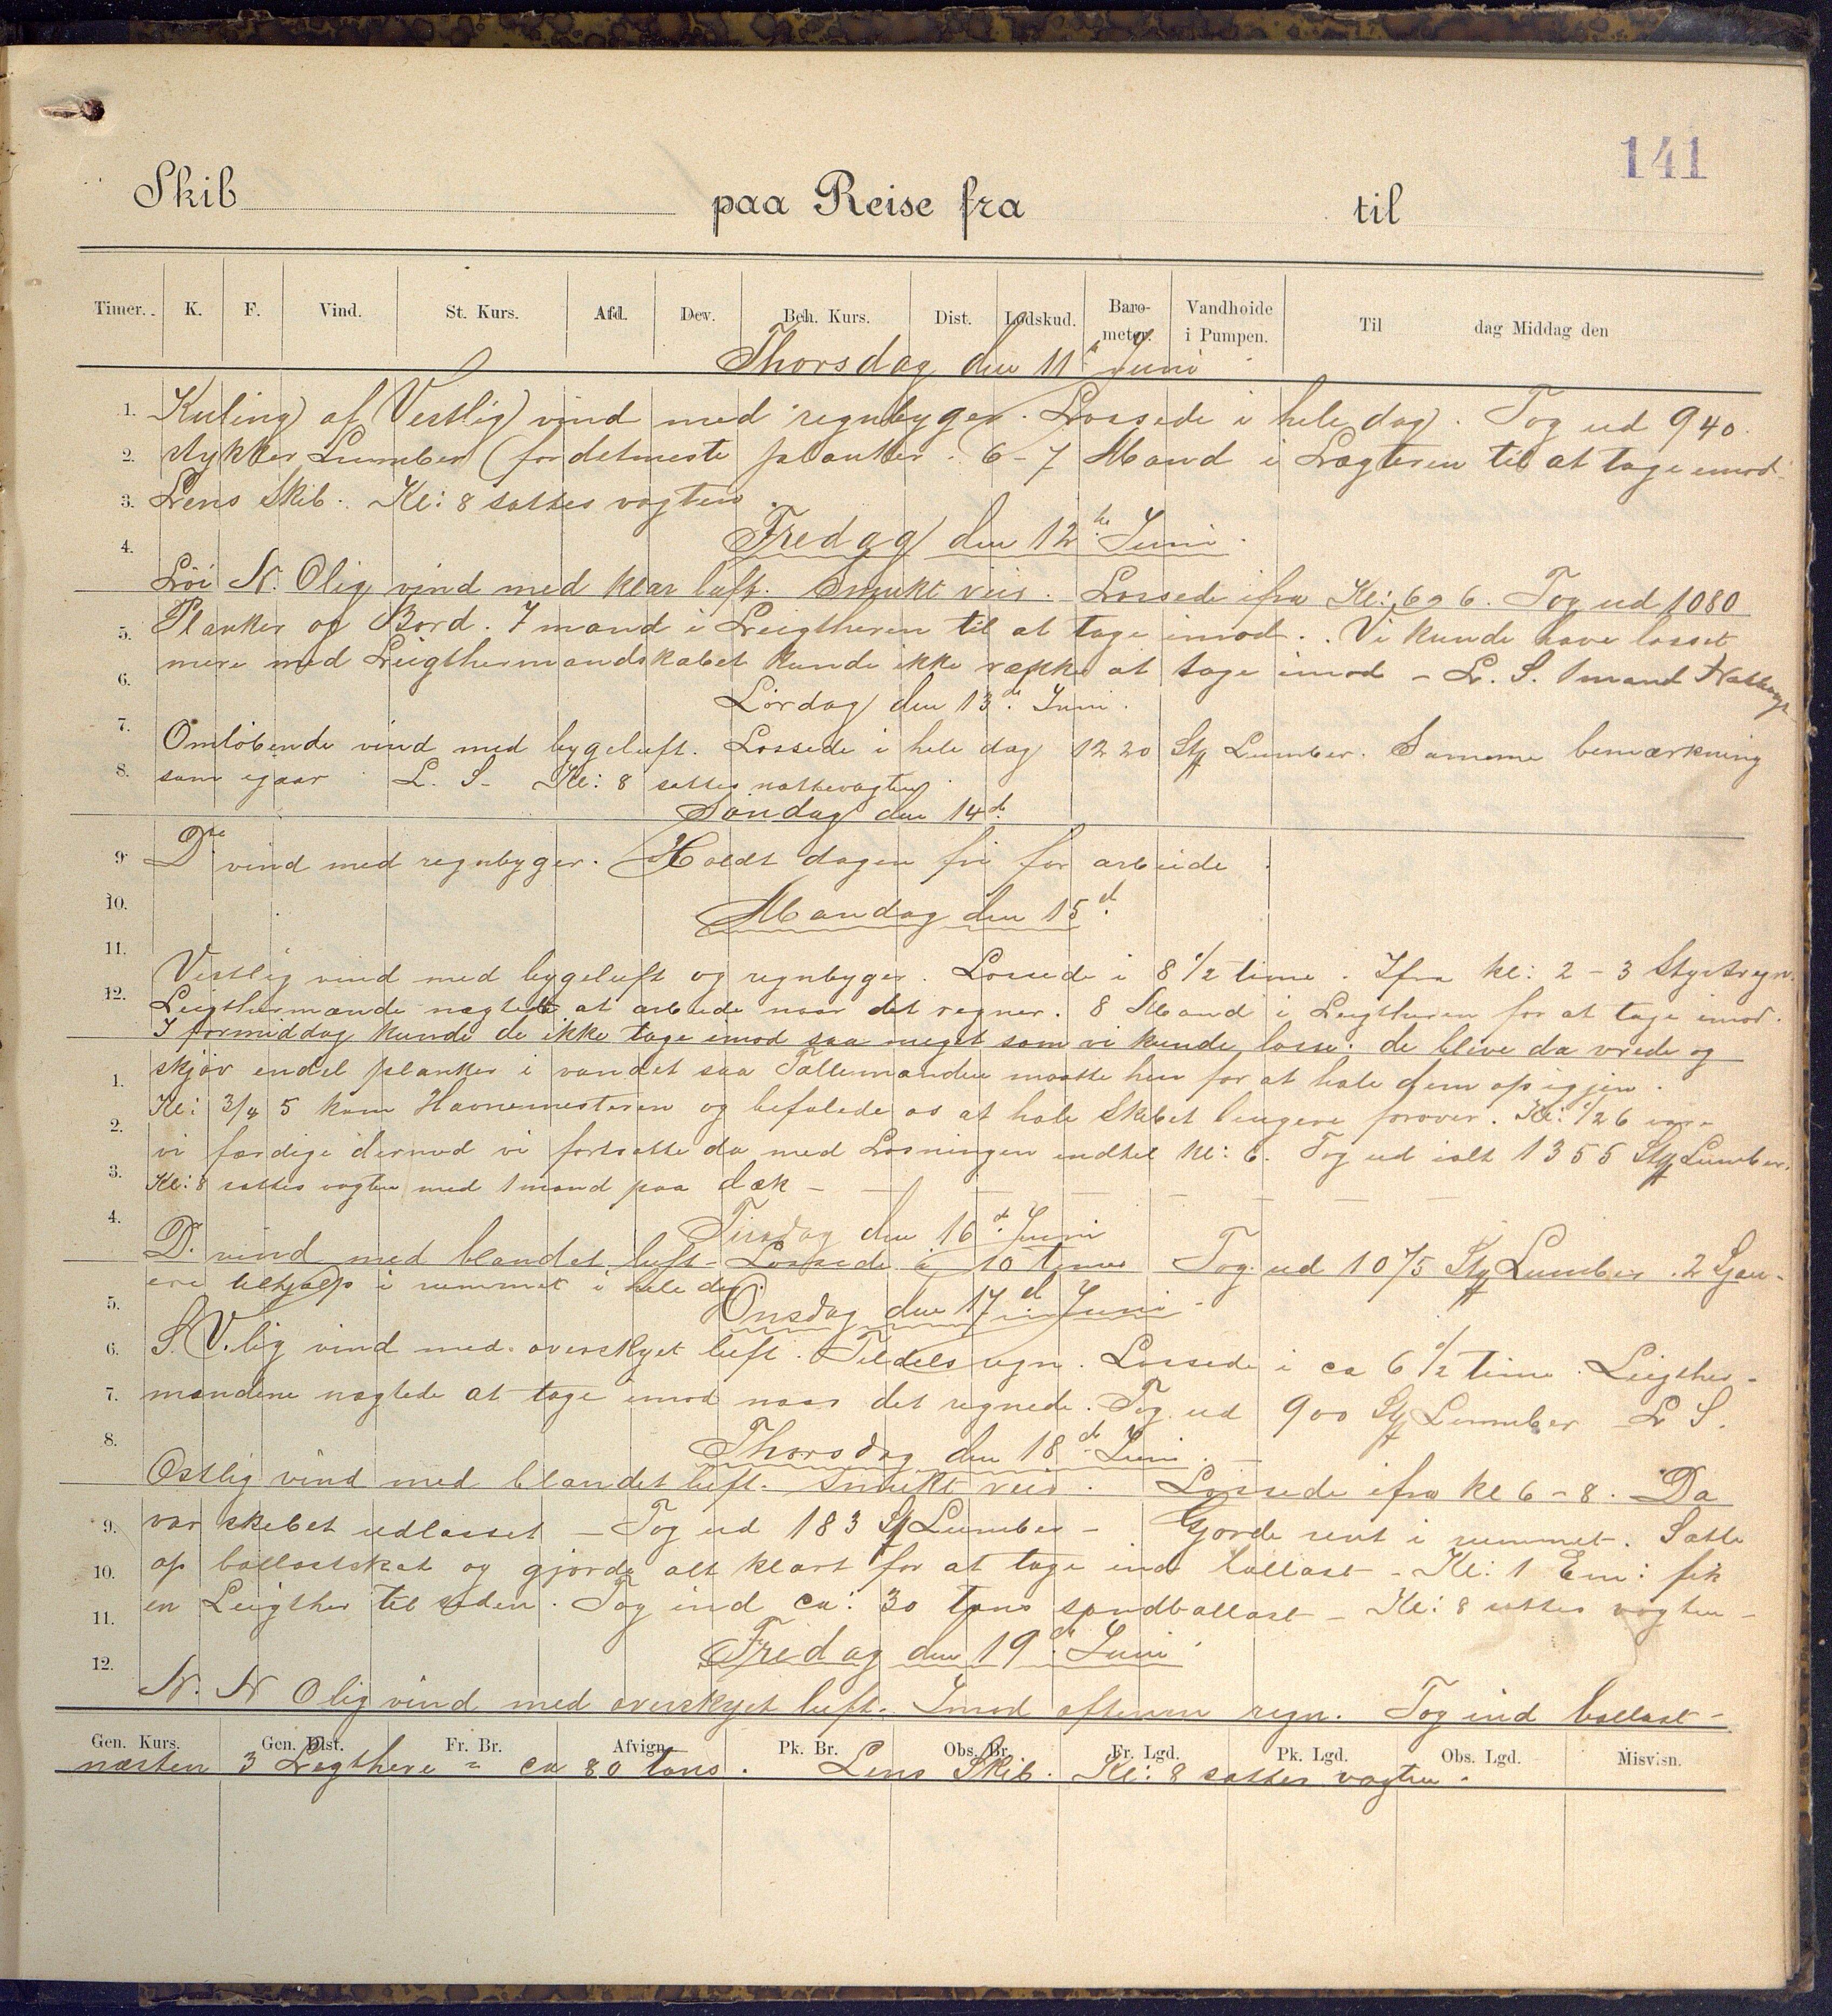 141
Skib paa Reise fra til
Timer. K. F. Vind. St. Kurs. Afd. Dev. Beh. Kurs. Dist. Lodskud. Barometer. Vandhoide i Pumpen. Til dag Middag den
Thorsdag den 11te Juni
1. Kuling af Vestlig vind med regnbyger. Lossede i hele dag. Tog ud 940
2. stykker Lumber (fordetmeste planker. 6-7 Mand i Lægteren til at tage imod
3. Lens Skib. Kl: 8 sattes vagten
4. Fredag den 12te Juni.
Löi N. Olig vind med klar luft. Smukt veir. Lossede ifra Kl: 6 o 6. Tog ud 1080
5. Planker og Bord. 7 mand i Leigtheren til at tage imod. Vi kunde have losset
6. mere med Leigthermandskabet kunde ikke række at tage imod - L. S. 1 mand Nattevagt
Lördag den 13de Juni.
7. Omlöbende vind med bygeluft. Lossede i hele dag 1220 Stq Lumber. Samme bemærkning
8. som igaar L. S. Kl: 8 sattes nattevagten
Söndag den 14de
9. Do vind med regnbyger. Holdt dagen fri for arbeide.
10. Mandag den 15d.
11. Vestlig vind med bygeluft og regnbyger. Lossede i 8 1/2 time. Ifra kl: 2-3 Styrtregn.
12. Leigthermænde nægtede at arbeide naar det regner. 8 Mand i Leigtheren for at tage imod.
I formiddag kunde de ikke tage imod saa meget som vi kunde losse. de bleve da vrede og
1. skjöv endel planker i vandet saa Tallemanden maatte hen for at hale dem op igjen.
2. Kl: 3/4 5 kom Havnemesteren og befalede os at hale Skibet lengere forover. Kl: 1/2 6 vare
3. vi færdige dermed vi fortsatte da med Losningen indtil kl: 6. Tog ud ialt 1355 Stq Lumber.
Kl: 8 sattes vagten med 1 mand paa dæk -
4. Tirsdag den 16d. Juni
Do. vind med blandet luft - Lossede i 10 timer Tog ud 1075 Stq Lumber. 2 Sjau-
5. ere tilhjælp i rummet i hele dag.
Onsdag den 17d Juni
6. S.V.lig vind med overskyet luft. Tildels regn. Lossede i ca 6 1/2 time. Leigther-
7. mændene nægtede at tage imod naar det regnede. Tog ud 900 Stq Lumber L S.
8. Thorsdag den 18de Juni.
Ostlig vind med blandet luft. Smukt veir. Lossede ifra kl 6-8. Da
9. var skibet udlosset - Tog ud 183 Stq Lumber - Gjorde rent i rummet. Satte
10. op ballastskot og gjorde alt klart for at tage ind ballast - Kl: 1 Em: fik
11. en Leigther til siden. Tog ind ca: 30 tons sandballast - Kl: 8 sattes vagten -
Fredag den 19de Juni
12. N. N Olig vind med overskyet luft. Imod aftenen regn. Tog ind ballast -
Gen. Kurs. Gen. Dist. Fr. Br. Afvign. Pk. Br. Obs. Br. Fr. Lgd. Pk. Lgd. Obs. Lgd. Misvisn.
næsten 3 Legthere = ca 80 tons. Lens Skib. Kl: 8 sattes vagten.